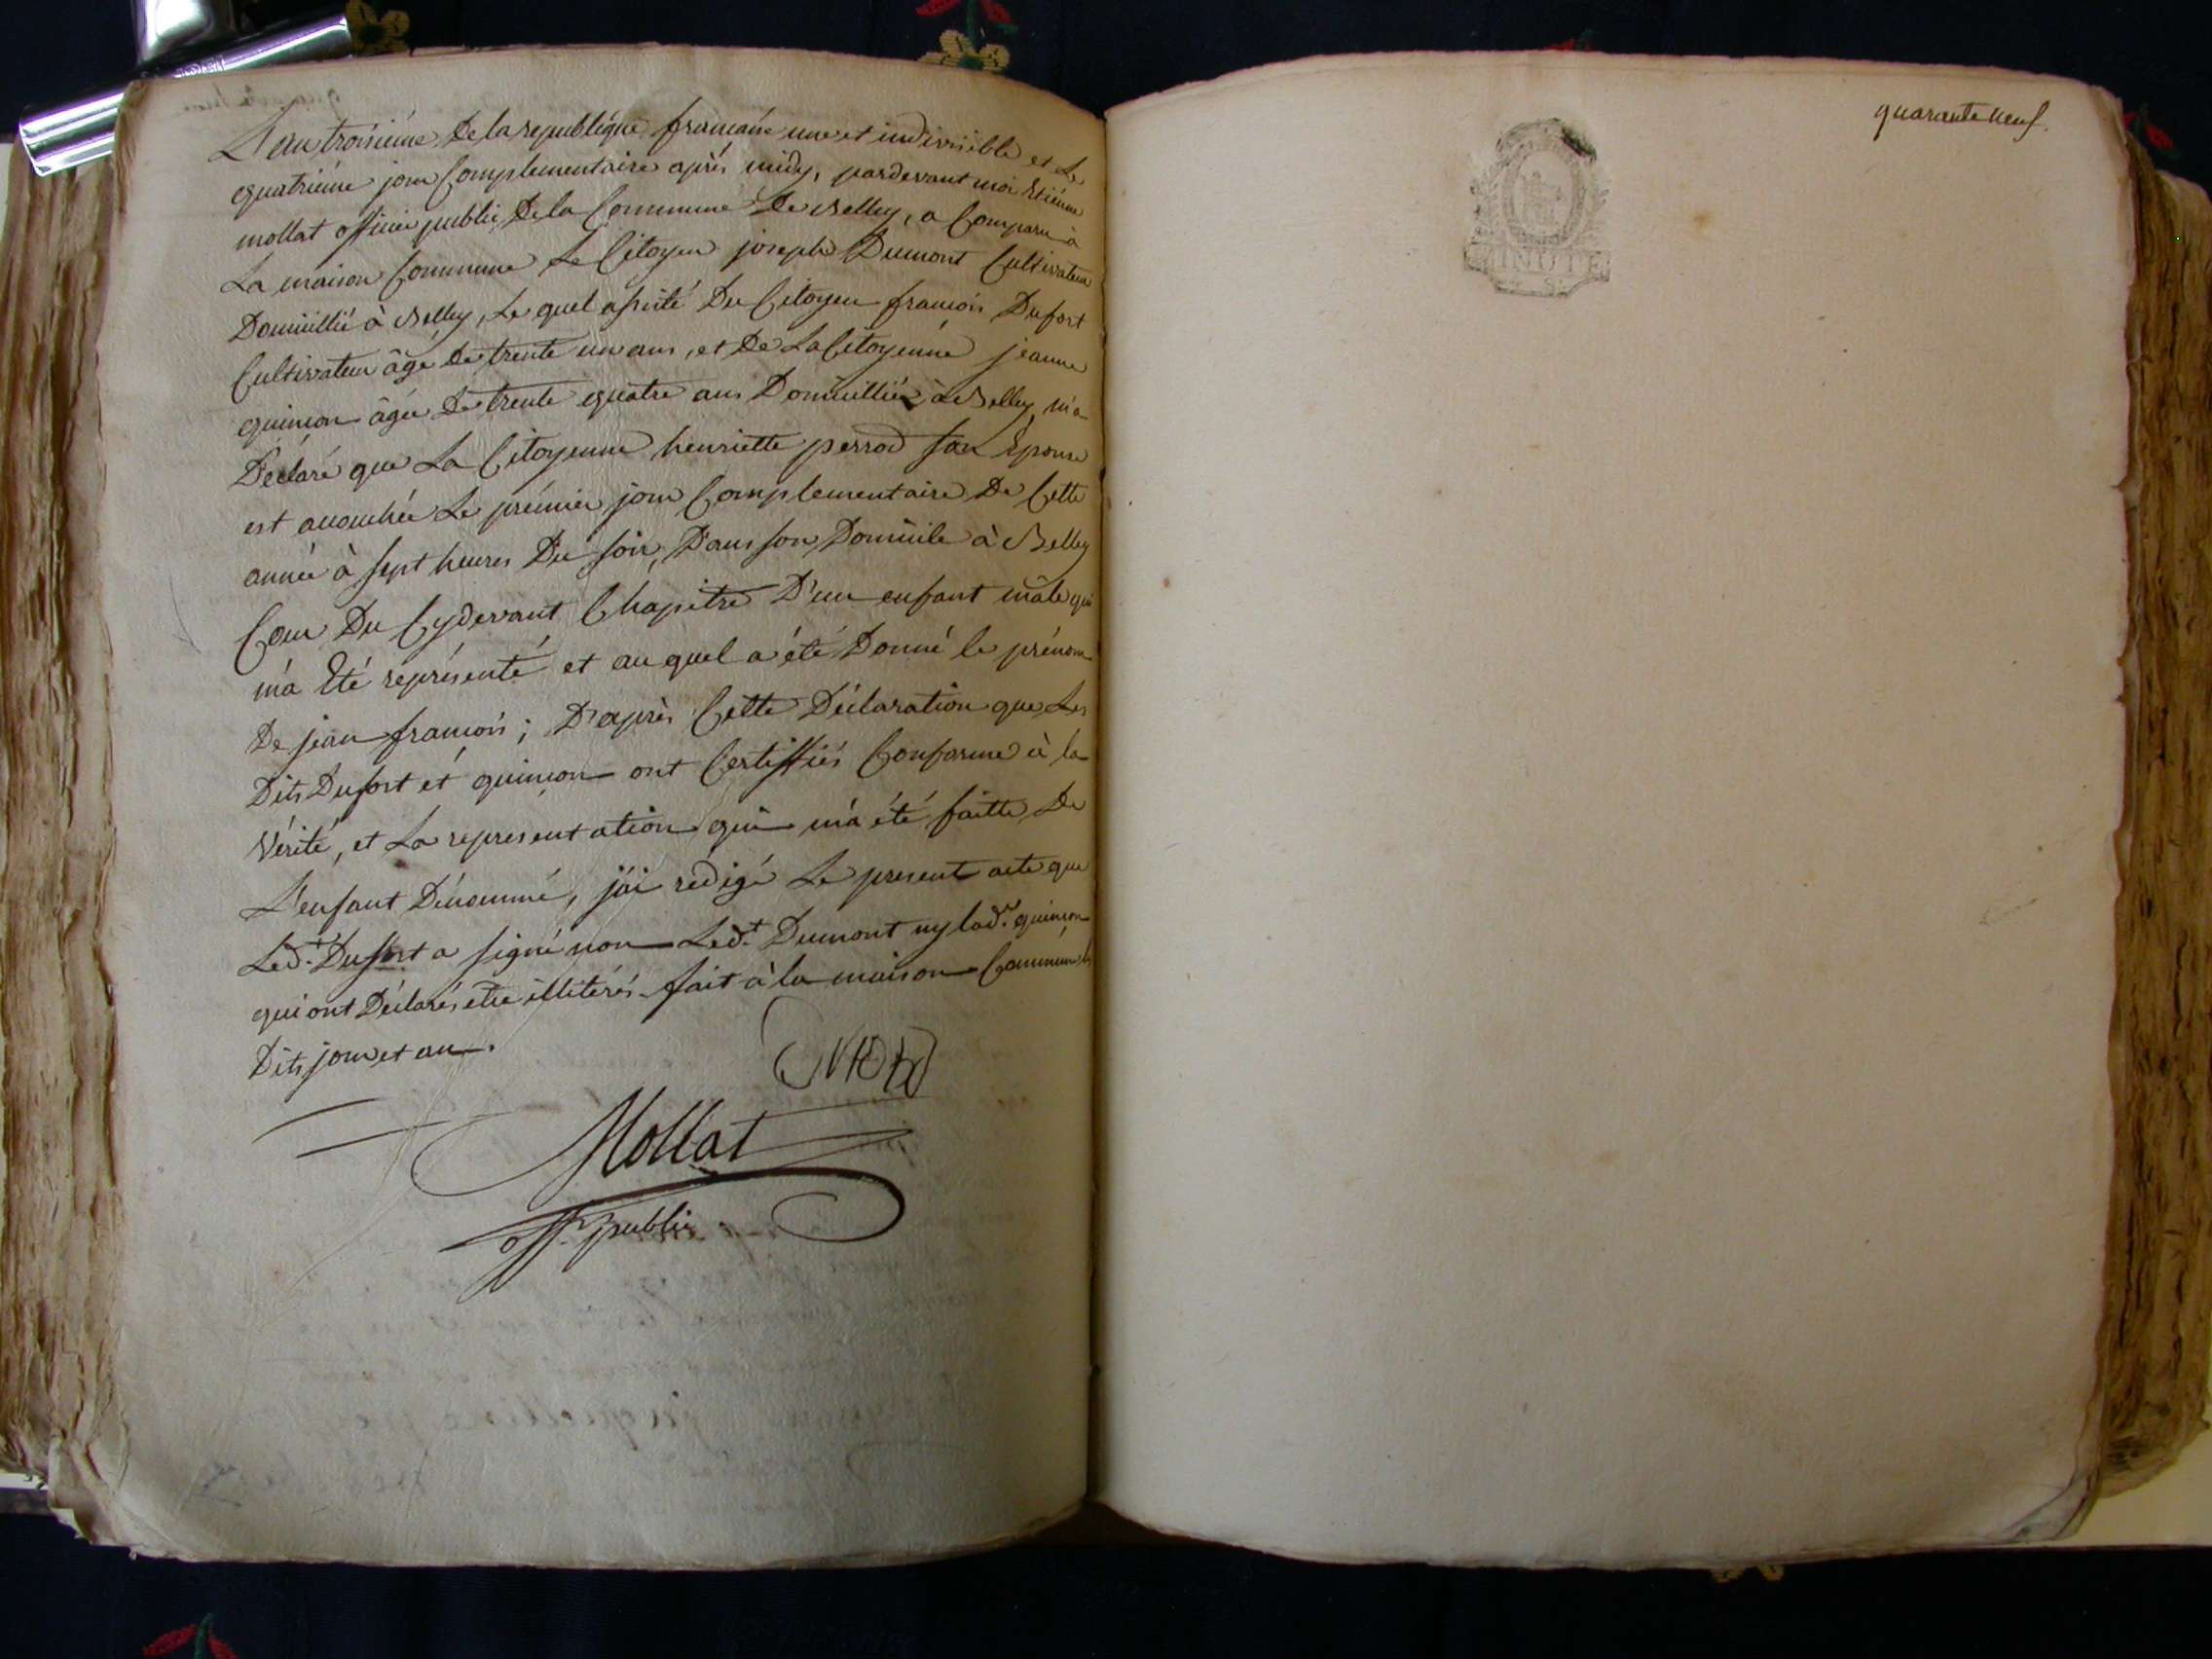 L'an troisiéme De la republique francaise une et indivisible et Le
quatriéme jour Complementaire aprés midy, pardevant moi Etiénne
mollat officier public De la Commune De Belley, a Comparu à
La maison Commune Le Citoyen joseph Dumont Cultivateur
Domicillié à Belley, Le quel assisté Du Citoyen francois Dufort
Cultivateur âgé De trente un ans, et De La Citoyenne jeanne
quinçon âgée De trente quatre ans Domicilliés à Belley, m'a
Déclaré que La Citoyenne henriette perrod son Epouse
est accouchée Le prémier jour Complementaire De Cette
année à sept heures Du soir, Dans son Domicile à Belley
Cour Du Cydevant Chapitre D'un enfant mâle qui
m'a Eté représenté et au quel a été Donné le prénom
De jean francois; D'après Cette Déclaration que Les
Dits Dufort et quinçon ont Certiffiés Conforme à la
Vérité, et La representation qui m'a été faitte De
L'enfant Dénommé, j'ai redigé Le present acte que
Led.t Dufort a signé non Led.t Dumont ny lad.e quinçon
qui ont Déclarés etre illiterés. fait à la maison Commune Les
Dits jour et an.
Mollat
off. public
quarante neuf.
MINUTE